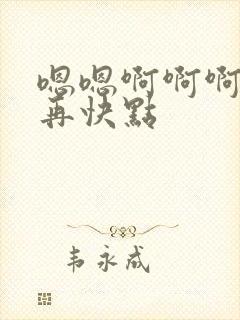 嗯嗯啊啊啊
再快點
韦永成